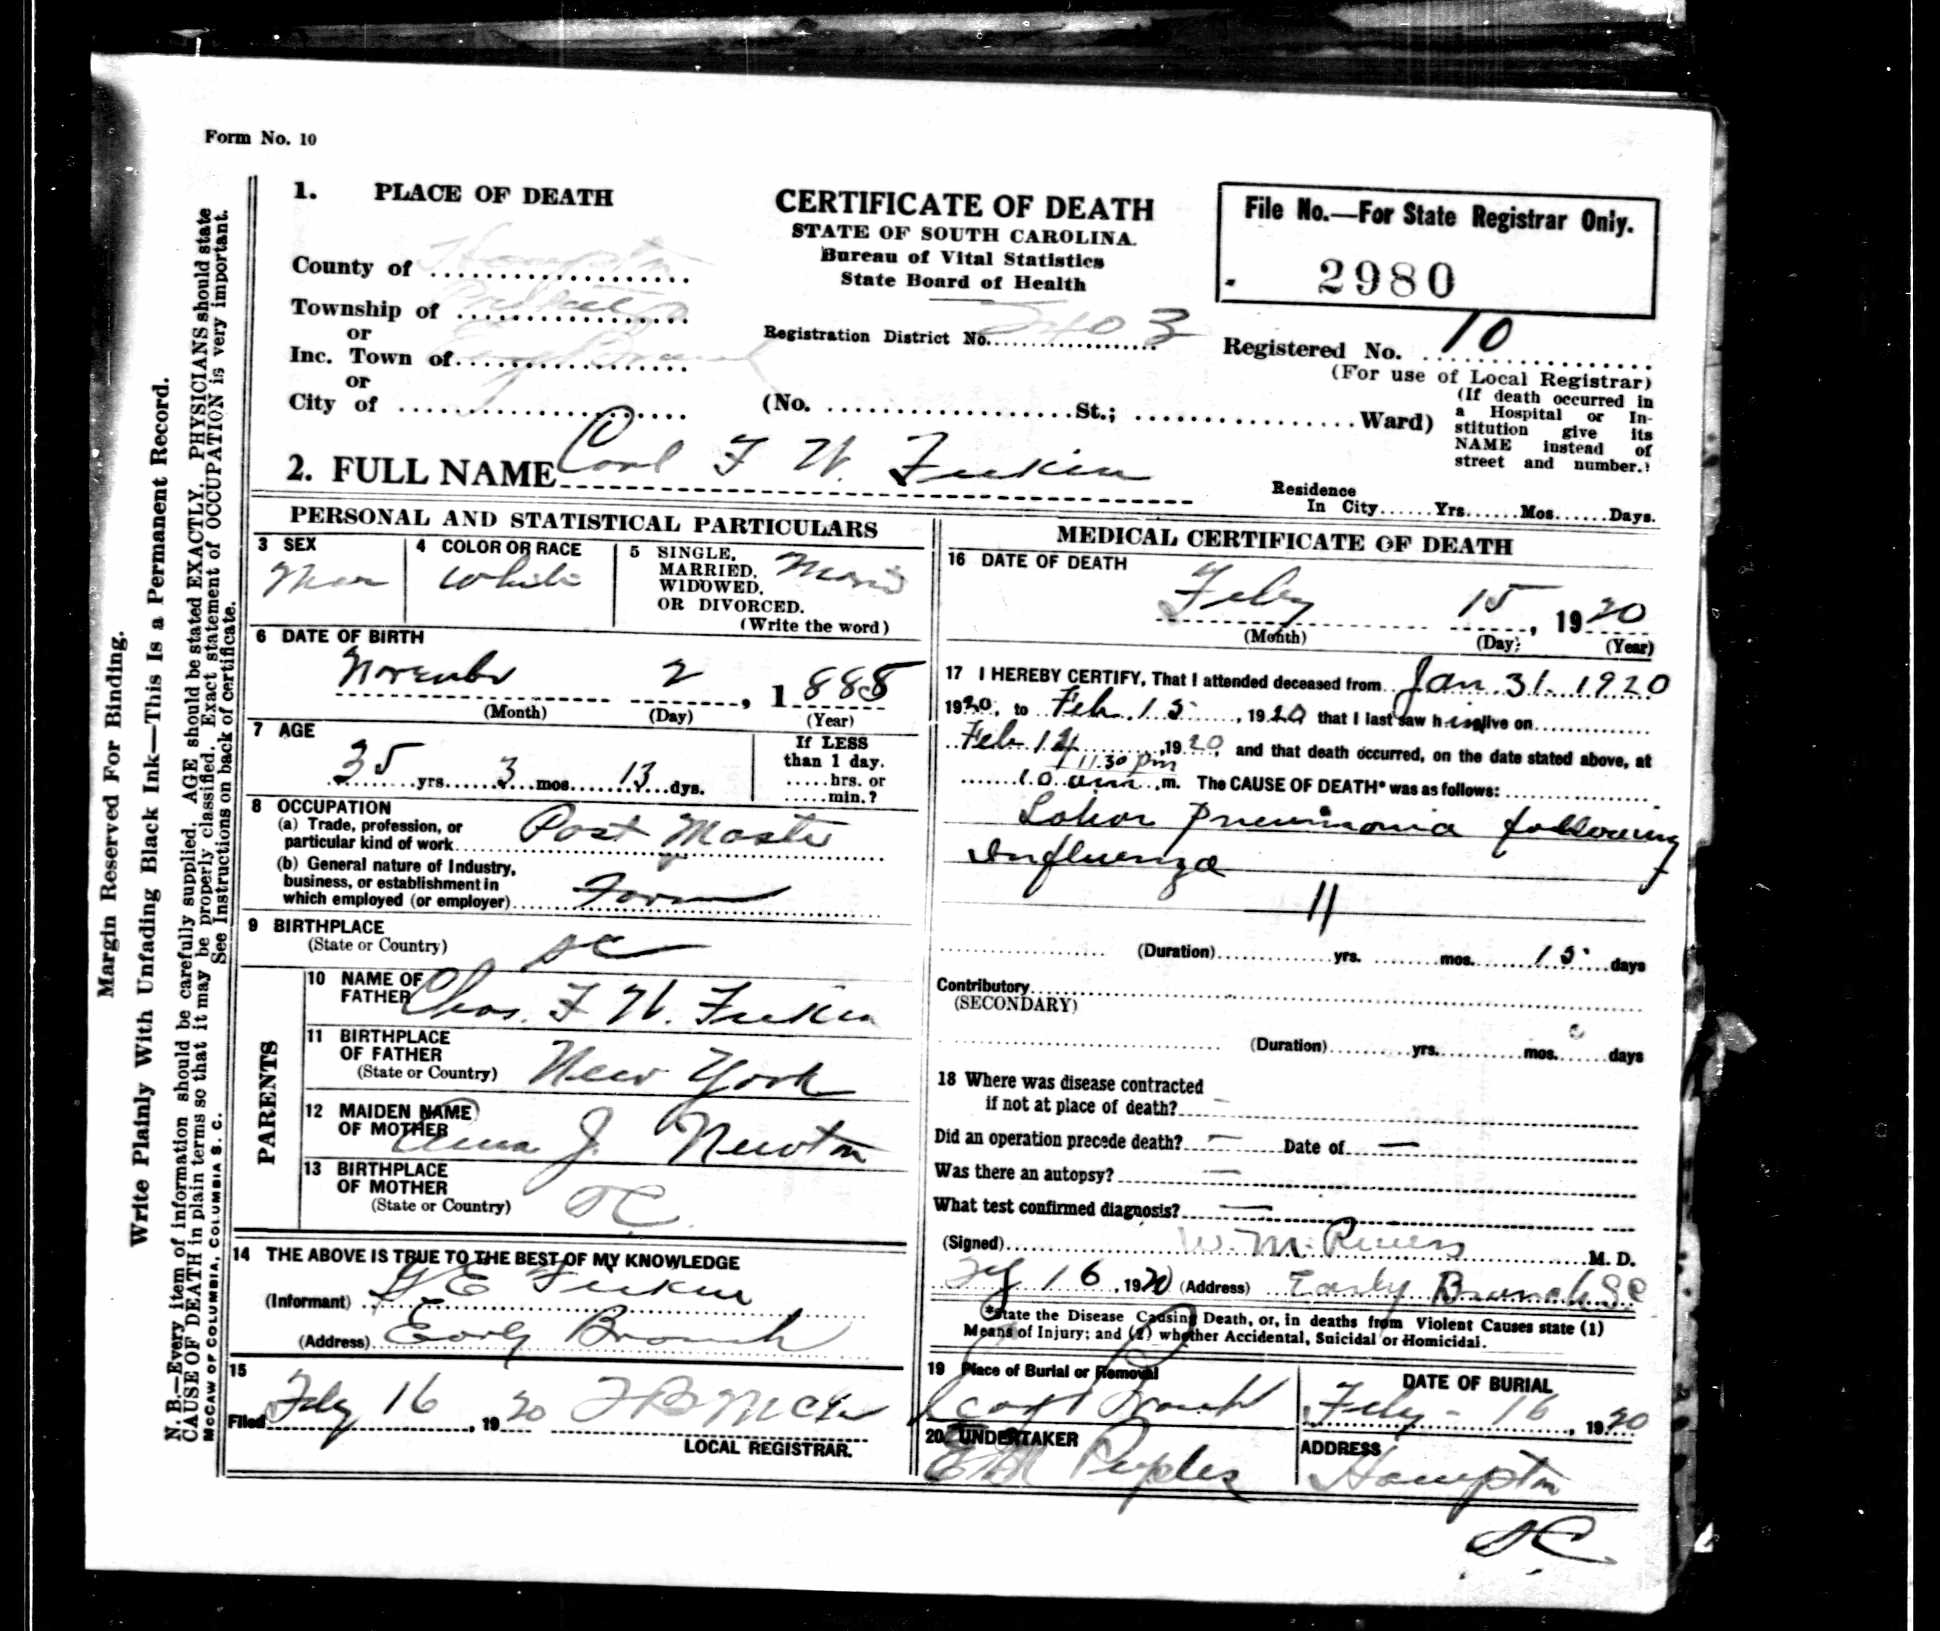 Form No. 10
1. PLACE OF DEATH
County of Hampton
Township of
or
Inc. Town of Early Branch
or
City of
CERTIFICATE OF DEATH
STATE OF SOUTH CAROLINA.
Bureau of Vital Statistics
State Board of Health
Registration District No. 2403
(No. St.; Ward)
File No.—For State Registrar Only.
2980
Registered No. 10
(For use of Local Registrar)
(If death occurred in
a Hospital or In-
stitution give its
NAME instead of
street and number.)
2. FULL NAME Carl F W.
Residence
In City......Yrs......Mos......Days.
PERSONAL AND STATISTICAL PARTICULARS
3 SEX
Man
4 COLOR OR RACE
White
5 SINGLE,
MARRIED,
WIDOWED,
OR DIVORCED.
(Write the word)
6 DATE OF BIRTH
November 2, 1888
(Month) (Day) (Year)
7 AGE
35 yrs. 3 mos. 13 dys.
If LESS
than 1 day.
.....hrs. or
.....min.?
8 OCCUPATION
(a) Trade, profession, or
particular kind of work Post Master
(b) General nature of Industry,
business, or establishment in
which employed (or employer) Farm
9 BIRTHPLACE
(State or Country) SC
PARENTS
10 NAME OF
FATHER Chas. F W.
11 BIRTHPLACE
OF FATHER
(State or Country) New York
12 MAIDEN NAME
OF MOTHER Anna J. Newton
13 BIRTHPLACE
OF MOTHER
(State or Country) SC
14 THE ABOVE IS TRUE TO THE BEST OF MY KNOWLEDGE
(Informant)
(Address) Early Branch
15
Filed Feby 16, 1920
LOCAL REGISTRAR.
MEDICAL CERTIFICATE OF DEATH
16 DATE OF DEATH
Feby 15, 1920
(Month) (Day) (Year)
17 I HEREBY CERTIFY, That I attended deceased from Jan. 31. 1920
1920, to Feb. 15, 1920 that I last saw him alive on
Feb 14, 1920, and that death occurred, on the date stated above, at
11.30 pm
10 am m. The CAUSE OF DEATH* was as follows:
Lobar pneumonia following
Influenza
11
(Duration) yrs. mos. 15 days
Contributory
(SECONDARY)
(Duration) yrs. mos. days
18 Where was disease contracted
if not at place of death? —
Did an operation precede death? — Date of —
Was there an autopsy? —
What test confirmed diagnosis? —
(Signed) W. M. Rivers M. D.
Feb 16, 1920 (Address) Early Branch SC
*State the Disease Causing Death, or, in deaths from Violent Causes state (1)
Means of Injury; and (2) whether Accidental, Suicidal or Homicidal.
19 Place of Burial or Removal
Early Branch
DATE OF BURIAL
Feby - 16, 1920
20 UNDERTAKER
E M Peeples
ADDRESS
Hampton
SC
Margin Reserved For Binding.
Write Plainly With Unfading Black Ink—This Is a Permanent Record.
N. B.—Every item of information should be carefully supplied. AGE should be stated EXACTLY. PHYSICIANS should state
CAUSE OF DEATH in plain terms so that it may be properly classified. Exact statement of OCCUPATION is very important.
See Instructions on back of certificate.
McCAW OF COLUMBIA, COLUMBIA S. C.